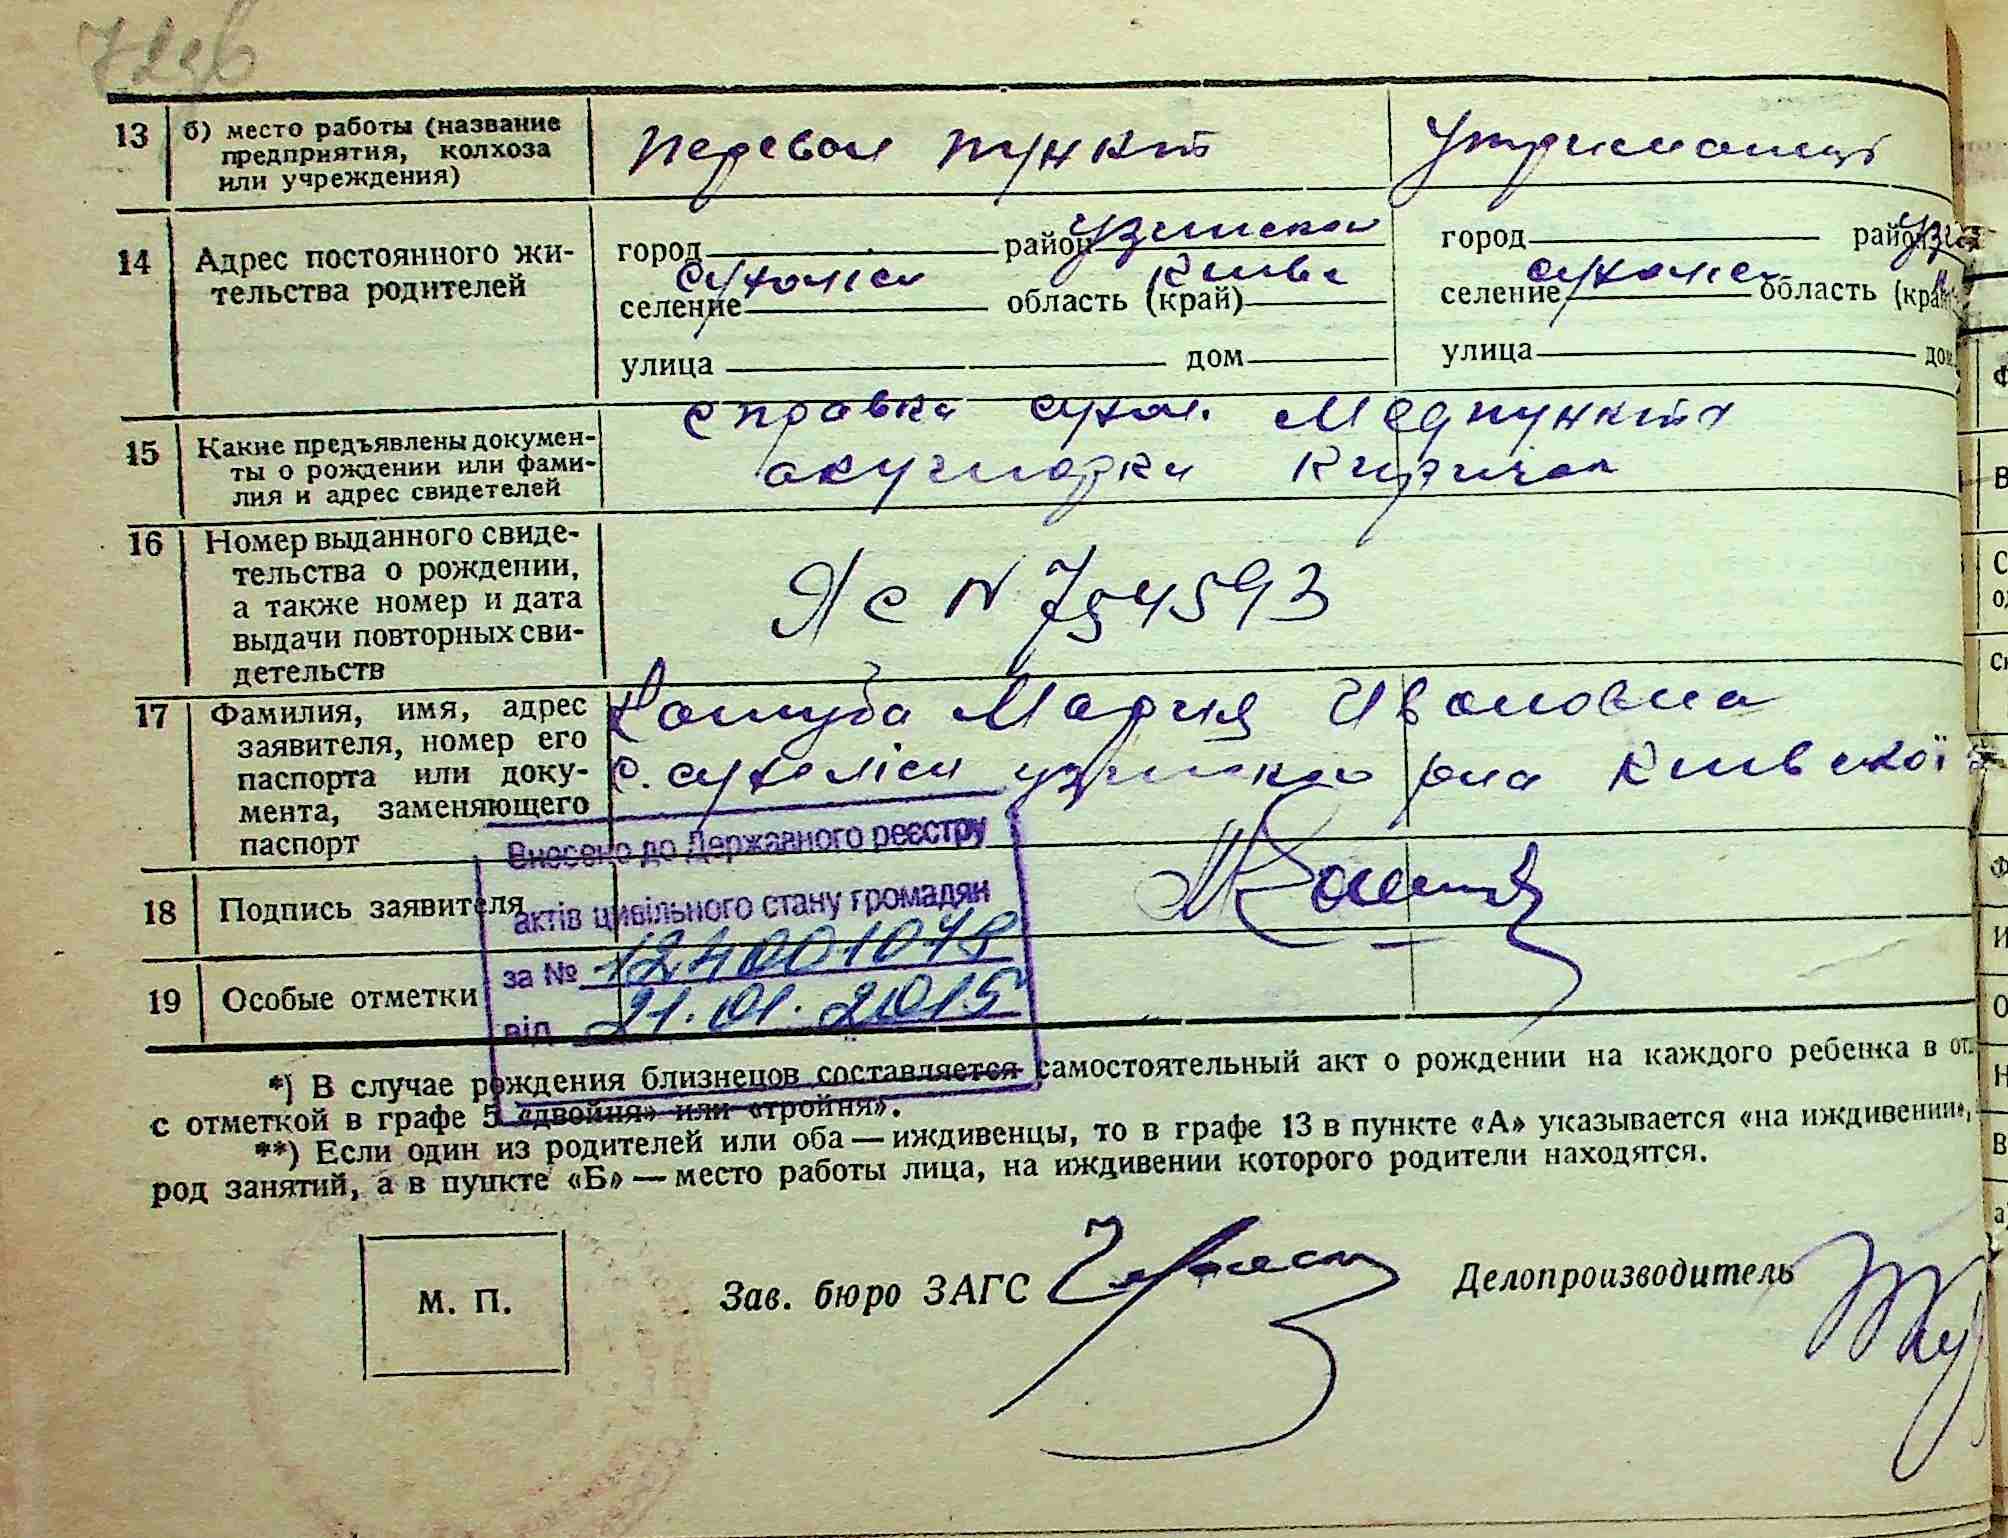 13 б) место работы (название предприятия, колхоза или учреждения) Перевал пункт Утриманці
14 Адрес постоянного жительства родителей
город район Узинский город район
селение Сухоліси область (край) Київс селение Сухоліси область (кра
улица дом улица дом
15 Какие предъявлены документы о рождении или фамилия и адрес свидетелей
справка сухол. Медпункта
акушорки Киричок
16 Номер выданного свидетельства о рождении, а также номер и дата выдачи повторных свидетельств
ЯС N 754593
17 Фамилия, имя, адрес заявителя, номер его паспорта или документа, заменяющего паспорт
Мария Ивановна
с. Сухоліси узинского р-на Киевской
18 Подпись заявителя
19 Особые отметки
Внесено до Державного реєстру
актів цивільного стану громадян
за №
від 21.01.2015
*) В случае рождения близнецов составляется самостоятельный акт о рождении на каждого ребенка в от.
с отметкой в графе 5 «двойня» или «тройня».
**) Если один из родителей или оба — иждивенцы, то в графе 13 в пункте «А» указывается «на иждивении»,
род занятий, а в пункте «Б» — место работы лица, на иждивении которого родители находятся.
М. П. Зав. бюро ЗАГС Делопроизводитель